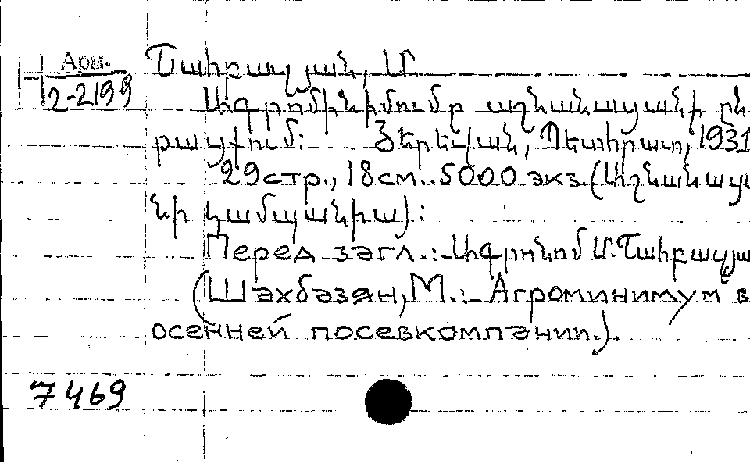 Арм.
2-2199
Շահբազյան, Մ.
Ագրոմինիմումը աշնանացանի ըն
րացքում: Յերեվան, Պետհրատ, 1931
29 стр., 18 см. 5000 экз. (Աշնանացա
նի կամպանիա):
Перед загл.: Ագրոնոմ Մ. Շահբազյա
(Шахбазян, М.: Агроминимум в
осенней посевкомпании.).
7469